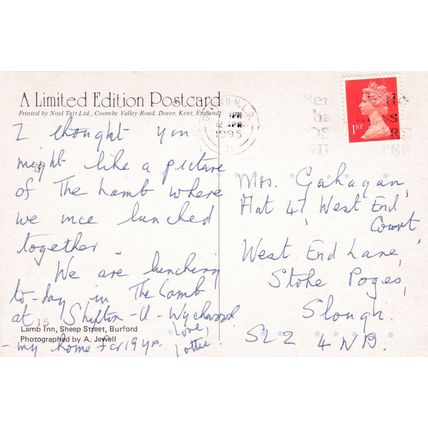 A Limited Edition Postcard
Printed by Noel Tatt Ltd., Coombe Valley Road, Dover, Kent, England
PM
1995
1ST
I thought you
might like a picture
of The Lamb where
we once lunched
together.
We are lunching
to-day in The Lamb
at Shipton-U-Wychwood
- my home for 19 yrs.
Love,
Lottie
15
Lamb Inn, Sheep Street, Burford
Photographed by A. Jewell
Mrs. Gahagan,
Flat 41, West End
Court,
West End Lane,
Stoke Poges,
Slough.
SL2 4NB.